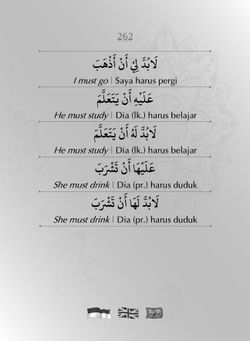 262
لَابُدَّ لِي أَنْ أَذْهَبَ
I must go | Saya harus pergi
عَلَيْهِ أَنْ يَتَعَلَّمَ
He must study | Dia (lk.) harus belajar
لَابُدَّ لَهُ أَنْ يَتَعَلَّمَ
He must study | Dia (lk.) harus belajar
عَلَيْهَا أَنْ تَشْرَبَ
She must drink | Dia (pr.) harus duduk
لَابُدَّ لَهَا أَنْ تَشْرَبَ
She must drink | Dia (pr.) harus duduk